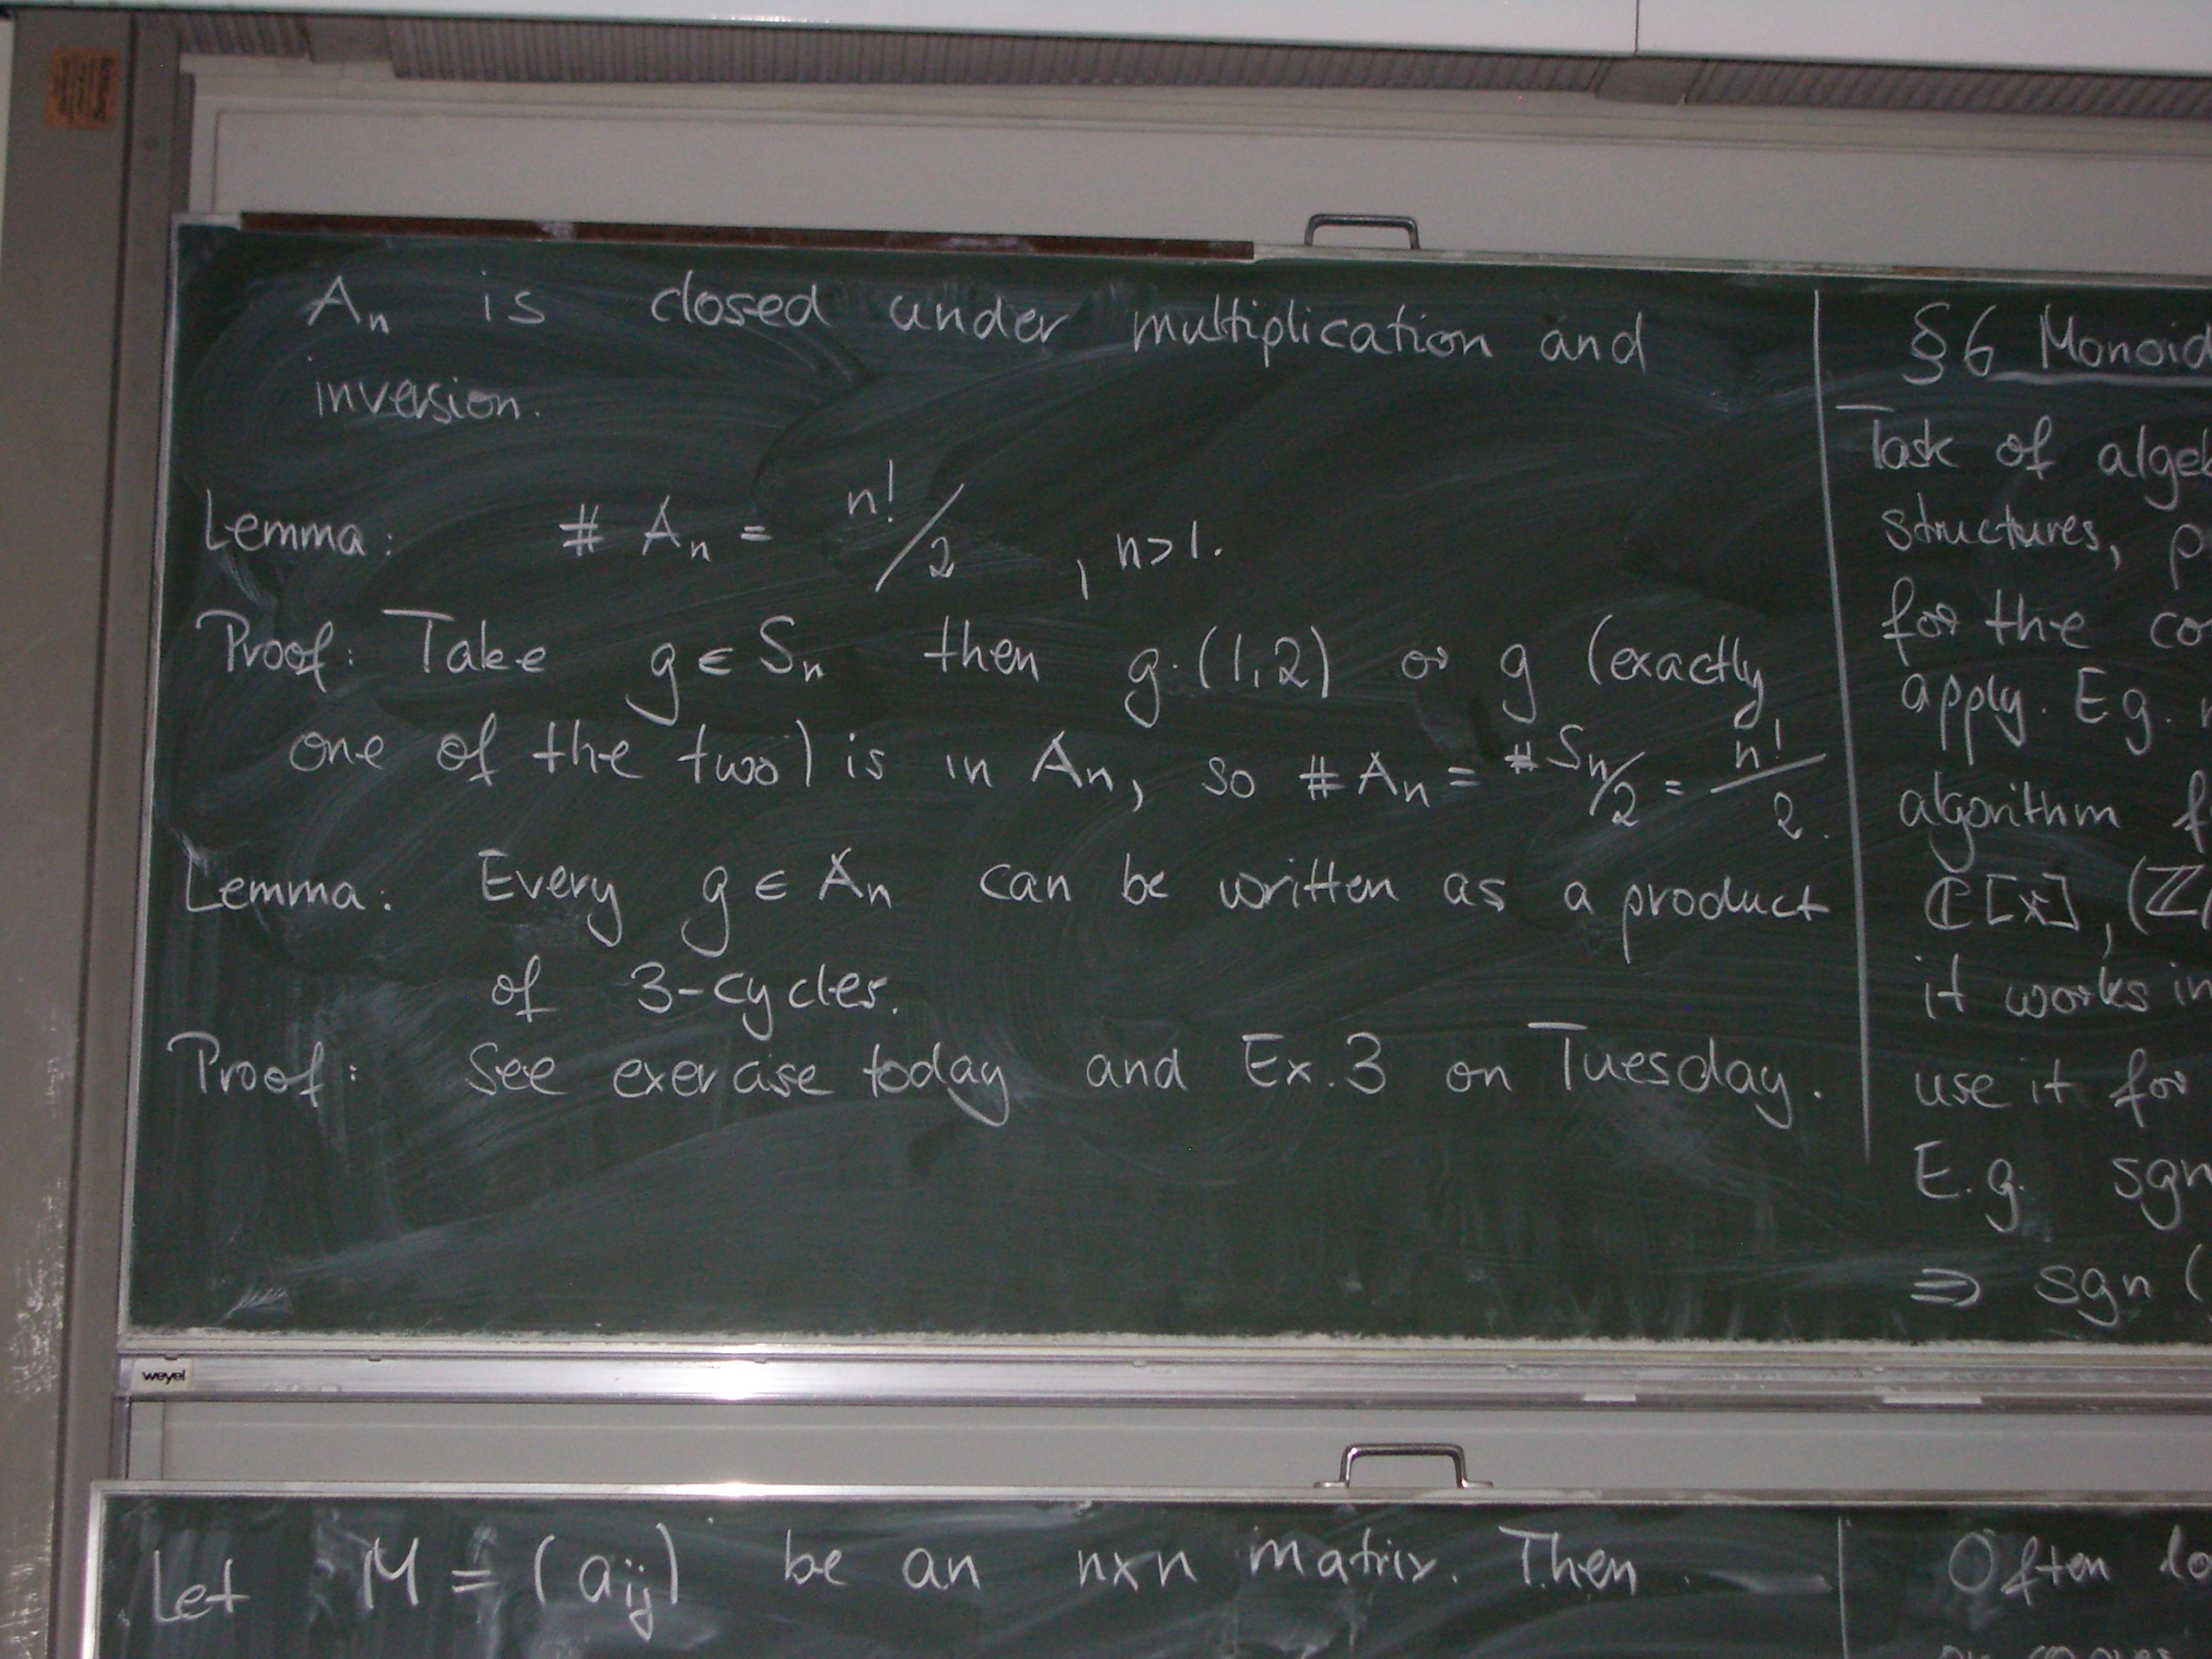 An is closed under multiplication and
inversion.
Lemma: # An = n!/2 , n>1.
Proof: Take g ∈ Sn then g·(1,2) or g (exactly
one of the two) is in An, so # An = # Sn/2 = n!/2.
Lemma: Every g ∈ An can be written as a product
of 3-cycles.
Proof: See exercise today and Ex. 3 on Tuesday.
§6 Monoid
Task of algeb
structures, p
for the co
apply. Eg.
algorithm f
ℂ[x], (ℤ/
it works in
use it for
E.g. sgn
⇒ sgn (
weyel
Let M = (aij) be an n×n matrix. Then
Often lo